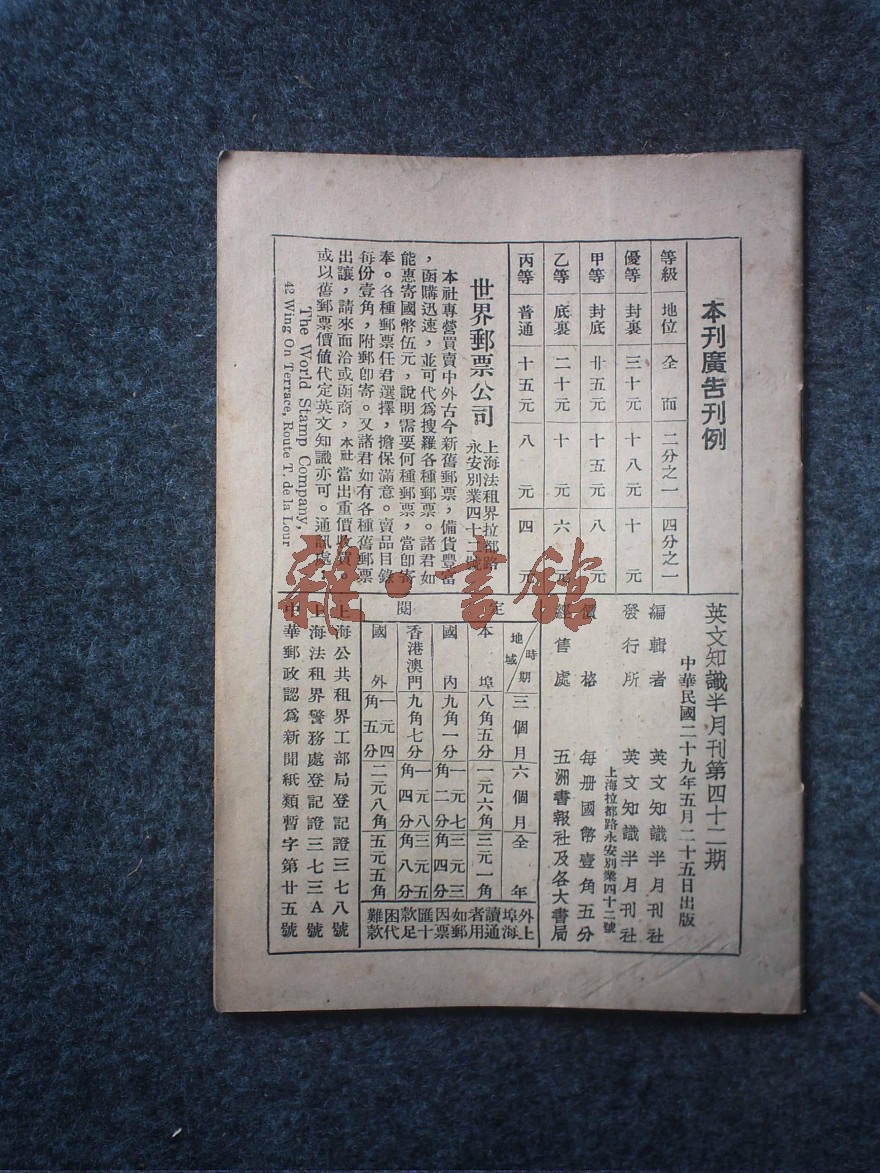 本刊廣告刊例
等級 地位 全面 二分之一 四分之一
優等 封裏 三十元 十八元 十元
甲等 封底 廿五元 十五元 八元
乙等 底裏 二十元 十元 六元
丙等 普通 十五元 八元 四元
世界郵票公司
上海法租界拉都路
永安別業四十二號
本社專營買賣中外古今新舊郵票,備貨豐富
,函購迅速,並可代爲搜羅各種郵票。諸君如
能惠寄國幣伍元,說明需要何種郵票,當卽寄
奉。各種郵票任君選擇,擔保滿意。賣品目錄
每份壹角,附郵卽寄。又諸君如有各種舊郵票
出讓,請來面洽或函商,本社當出重價收買。
或以舊郵票價値代定英文知識亦可。通訊處:
The World Stamp Company,
42 Wing On Terrace, Route T. de la Lour
英文知識半月刊第四十二期
中華民國二十九年五月二十五日出版
編輯者 英文知識半月刊社
發行所 英文知識半月刊社
上海拉都路永安別業四十二號
價格 每册國幣壹角五分
經售處 五洲書報社及各大書局
定閱
時期 地域 三個月 六個月 全年
本埠 八角五分 一元六角 三元一角
國內 九角一分 一元七角二分 三元三角四分
香港澳門 九角七分 一元八角四分 三元五角八分
國外 一元四角五分 二元八角 五元五角
外埠讀者如因匯款困難
上海通用郵票十足代款
上海公共租界工部局登記證三七八號
上海法租界警務處登記證三七三A號
中華郵政認爲新聞紙類暫字第廿五號
雜·書館